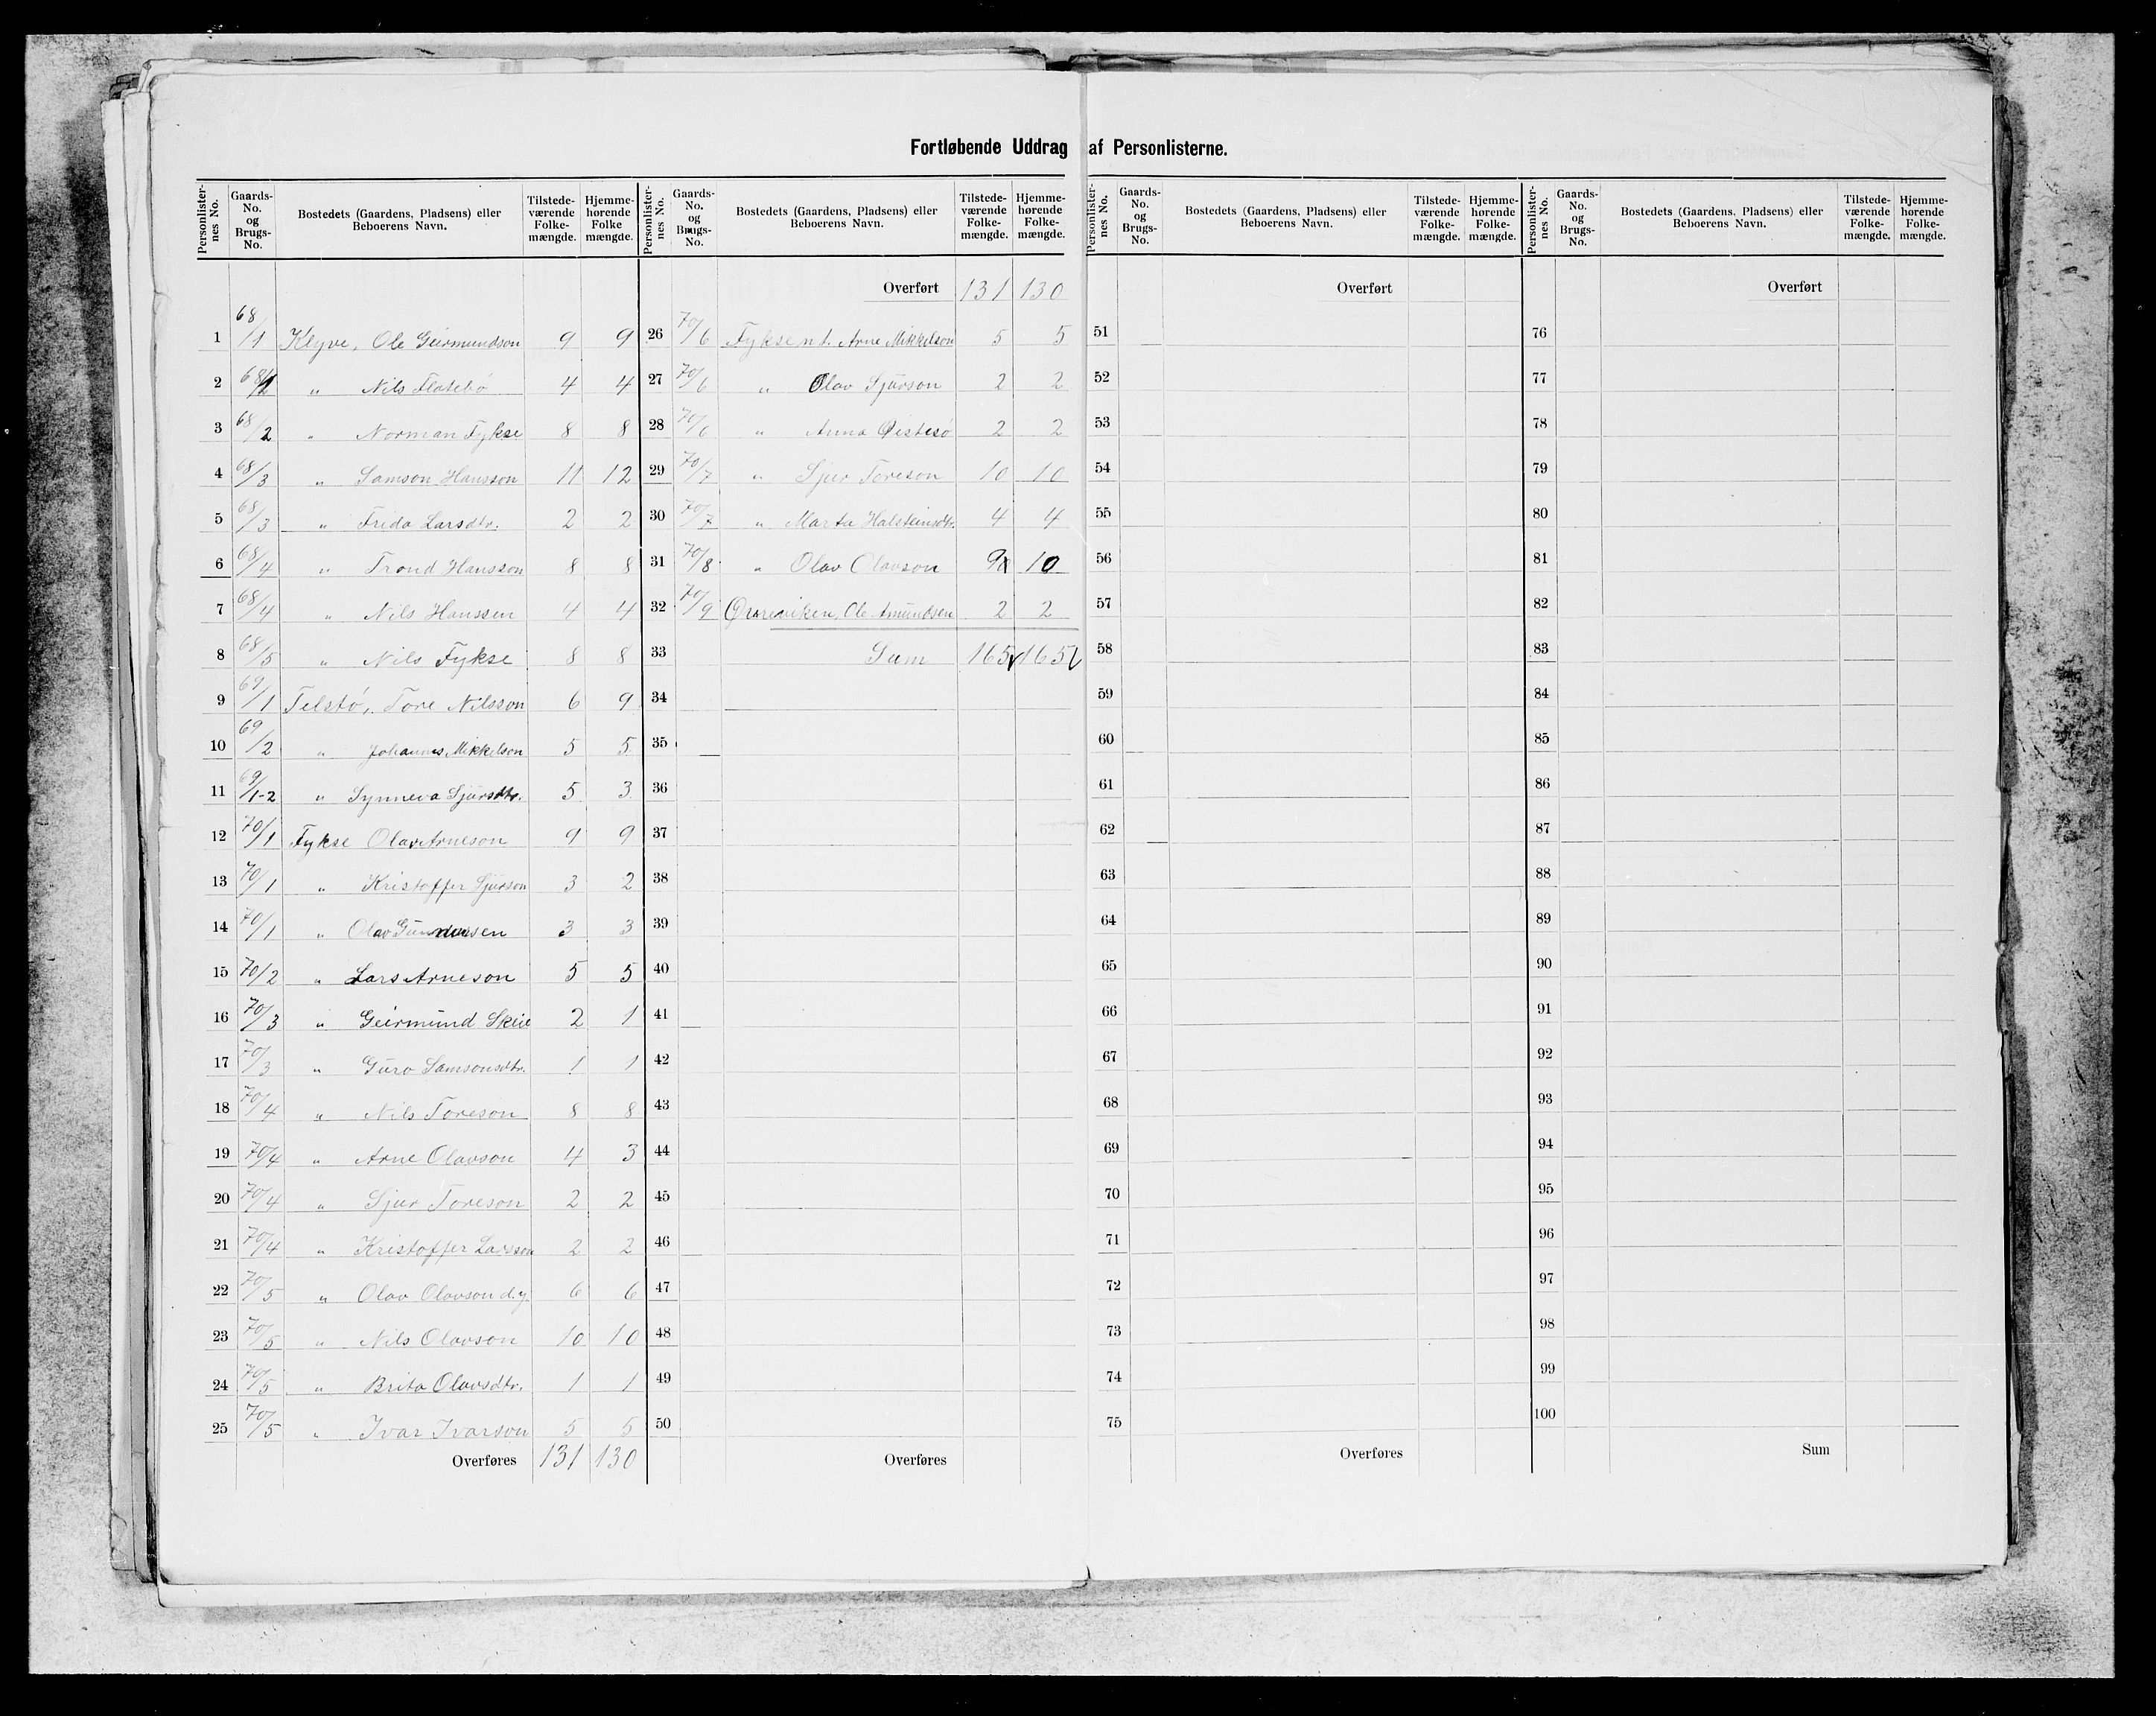 Fortløbende Uddrag af Personlisterne.
Personlister-nes No. | Gaards-No. og Brugs-No. | Bostedets (Gaardens, Pladsens) eller Beboerens Navn. | Tilstede-værende Folke-mængde. | Hjemme-hørende Folke mængde.
1 68/1 Klyve, Ole Geirmundson 9 9
2 68/2 " Nils Flatebø 4 4
3 68/2 " Norman Fykse 8 8
4 68/3 " Samson Hansson 11 12
5 68/3 " Frida Larsdtr. 2 2
6 68/4 " Trond Hansson 8 8
7 68/4 " Nils Hanssen 4 4
8 68/5 " Nils Fykse 8 8
9 69/1 Telstø, Tore Nilsson 6 9
10 69/2 " Johannes Mikkelson 5 5
11 69/1-2 " Synneva Sjursdtr. 5 3
12 70/1 Fykse Olav Arneson 9 9
13 70/1 " Kristoffer Sjurson 3 2
14 70/1 " Olav 3 3
15 70/2 " Lars Arneson 5 5
16 70/3 " Geirmund Skeie 2 1
17 70/3 " Guro Samsonsdtr. 1 1
18 70/4 " Nils Toreson 8 8
19 70/4 " Arne Olavson 4 3
20 70/4 " Sjur Toreson 2 2
21 70/4 " Kristoffer Larsson 2 2
22 70/5 " Olav Olavson d.y. 6 6
23 70/5 " Nils Olavson 10 10
24 70/5 " Brita Olavsdtr. 1 1
25 70/5 " Ivar Ivarson 5 5
Overføres 131 130
Personlister-nes No. | Gaards-No. og Brugs-No. | Bostedets (Gaardens, Pladsens) eller Beboerens Navn. | Tilstede-værende Folke-mængde. | Hjemme-hørende Folke-mængde.
Overført 131 130
26 70/6 Fyksen Arne Mikkelson 5 5
27 70/6 " Olav Sjurson 2 2
28 70/6 " Anna Øistesø 2 2
29 70/7 " Sjur Toreson 10 10
30 70/7 " Marta Halsteinsdtr. 4 4
31 70/8 " Olav Olavson 9 10
32 70/9 Ole Amundsen 2 2
33 Sum 165 165
34
35
36
37
38
39
40
41
42
43
44
45
46
47
48
49
50
Overføres
Personlister-nes No. | Gaards-No. og Brugs-No. | Bostedets (Gaardens, Pladsens) eller Beboerens Navn. | Tilstede-værende Folke-mængde. | Hjemme-hørende Folke-mængde.
Overført
51
52
53
54
55
56
57
58
59
60
61
62
63
64
65
66
67
68
69
70
71
72
73
74
75
Overføres
Personlister-nes No. | Gaards-No. og Brugs-No. | Bostedets (Gaardens, Pladsens) eller Beboerens Navn. | Tilstede-værende Folke-mængde. | Hjemme-hørende Folke-mængde.
Overført
76
77
78
79
80
81
82
83
84
85
86
87
88
89
90
91
92
93
94
95
96
97
98
99
100
Sum